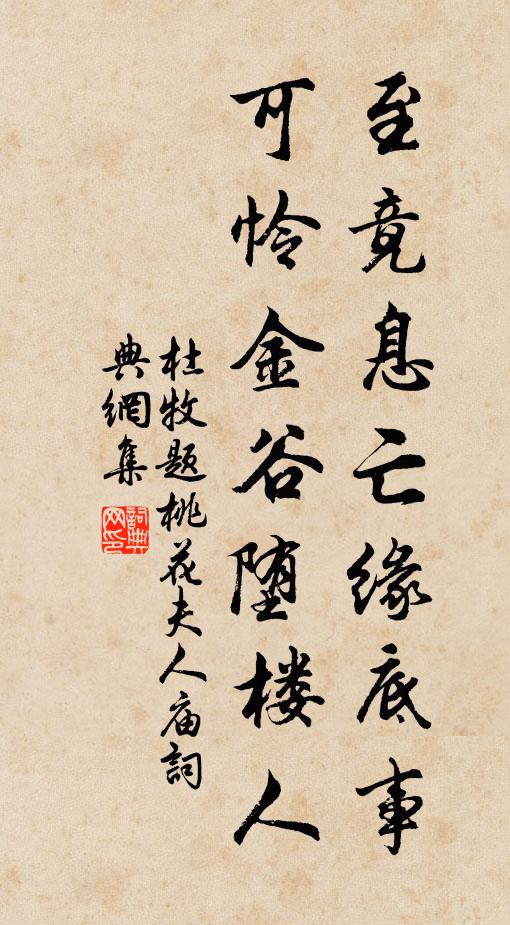 至竟息亡缘底事
可怜金谷堕楼人
杜牧题桃花夫人庙詞
典網集
詞典
网印